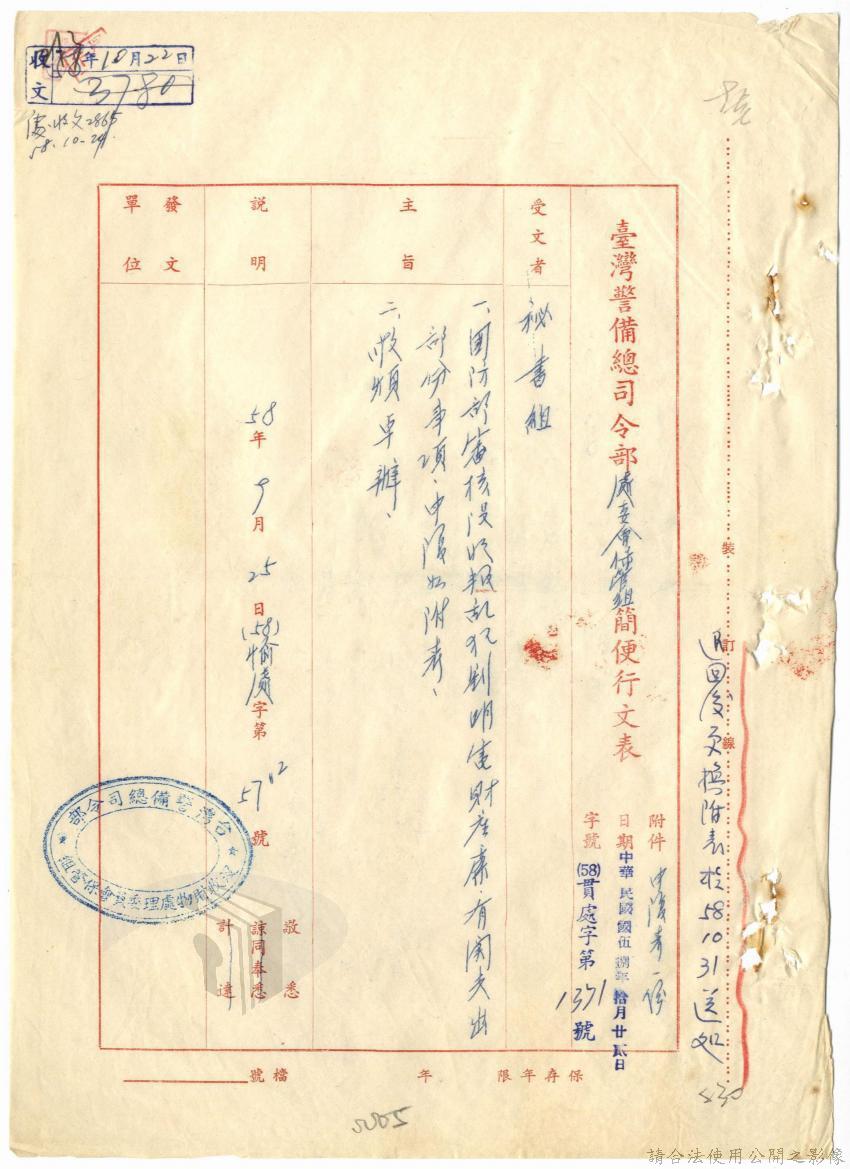 收文 58年10月22日
3780
處收文2865
58.10-24
臺灣警備總司令部處委會保管組簡便行文表
附件 申復表一份
日期 中華民國伍捌年拾月廿貳日
字號 (58)貫處字第1371號
受文者 秘書組
主旨
一、國防部審核沒收叛亂犯劉明富財產案,有關支出
部份事項,申復如附表、
二、敬煩卓辦、
說明
58年9月25日(58)愉處字第5712號
敬悉
諒同奉悉
計達
發文單位
台灣警備總司令部
裝訂線
退回後更換附表於58 10 31送處
530
保存年限 年
檔號
請合法使用公開之影像